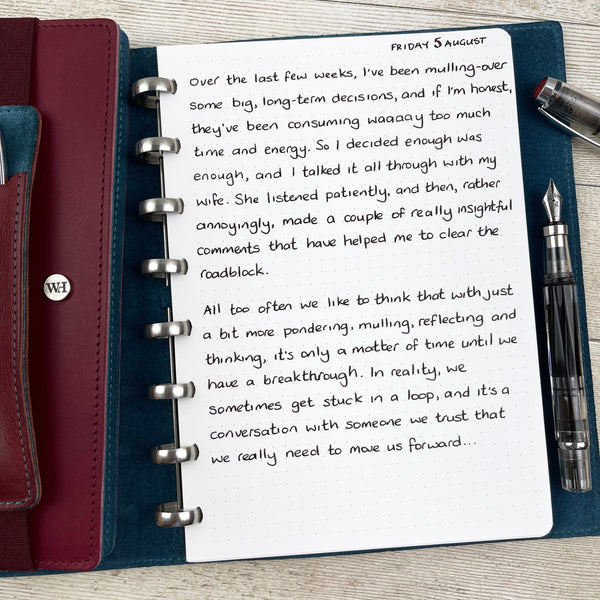 FRIDAY 5 AUGUST
Over the last few weeks, I've been mulling-over
some big, long-term decisions, and if I'm honest,
they've been consuming waaaay too much
time and energy. So I decided enough was
enough, and I talked it all through with my
wife. She listened patiently, and then, rather
annoyingly, made a couple of really insightful
comments that have helped me to clear the
roadblock.
All too often we like to think that with just
a bit more pondering, mulling, reflecting and
thinking, it's only a matter of time until we
have a breakthrough. In reality, we
sometimes get stuck in a loop, and it's a
conversation with someone we trust that
we really need to move us forward...
WH